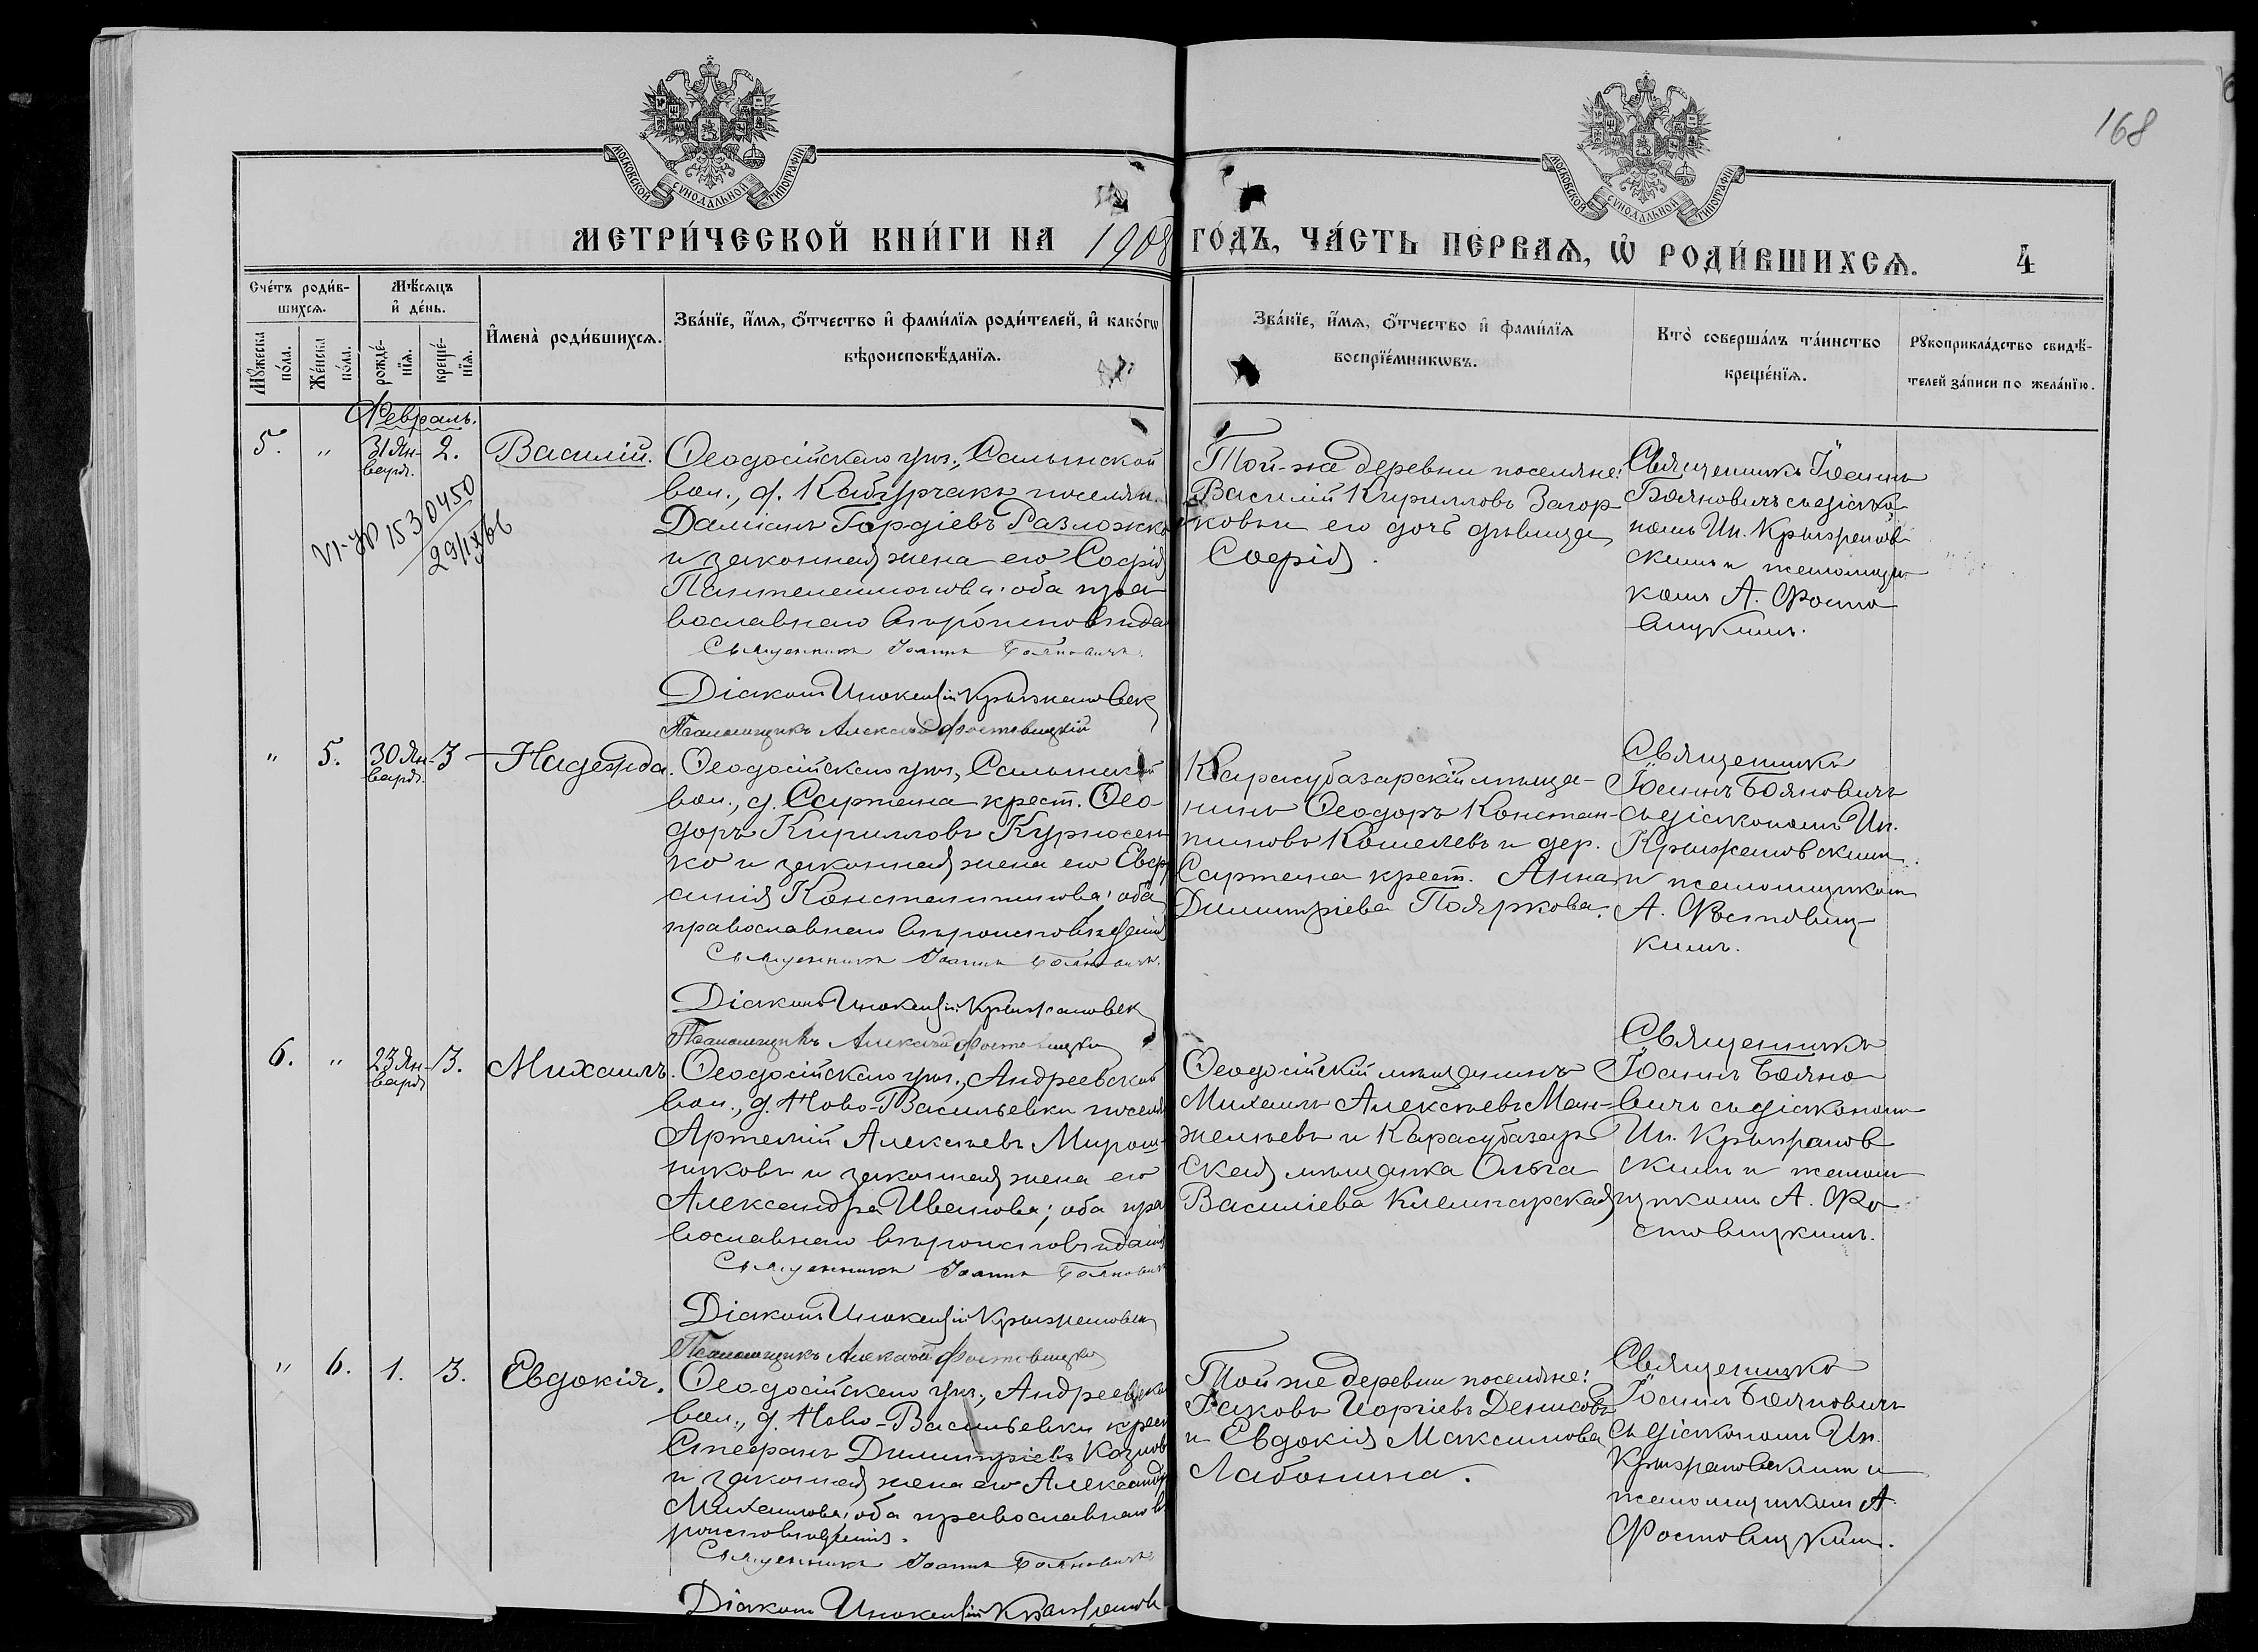 168
МОСКОВСКОЙ СѴНОДАЛЬНОЙ ТИПОГРАФІИ
МОСКОВСКОЙ СѴНОДАЛЬНОЙ ТИПОГРАФІИ
МЕТРИ́ЧЕСКОЙ КНИ́ГИ НА 1908 ГО́ДЪ, ЧА́СТЬ ПЕ́РВАЯ, Ѽ РОДИ́ВШИХСЯ. 4
Сче́тъ роди́в-
шихся.
Мѣ́сяцъ
и҆ де́нь.
Мꙋ́жеска
по́ла.
Же́нска
по́ла.
рожде́-
нїя.
креще́-
нїя.
И҆мена̀ роди́вшихся.
Зва́нїе, и҆́мя, ѻ҆́тчество и҆ фами́лїя роди́телей, и҆ како́гѡ
вѣроисповѣ́данїя.
Зва́нїе, и҆́мя, ѻ҆́тчество и҆ фами́лїя
воспрїе́мникѡвъ.
Кто̀ соверша́лъ та́инство
креще́нїя.
Рꙋкоприкла́дство свидѣ́-
телей за́писи по жела́нїю.
Февраль.
5. " 31 Ян-
варя. 2. Василій.
Ѳеодосійскаго уѣз.,
вол., д. Кабурчакъ поселян.
Даміанъ Гордіевъ Разложко
и законная жена его Софія
Пантелеимонова; оба пра-
вославнаго вѣроисповѣда
Священникъ Іоаннъ Бояновичъ.
Діаконъ Инокентій Крыжановск
Псаломщикъ Алексѣй Фостовицкій
Той-же деревни поселяне:
Василій Кирилловъ Загор-
ковъ и его дочь дѣвица
Софія.
Священникъ Іоаннъ
Бояновичъ съ діако-
номъ Ин. Крыжанов-
скимъ и псаломщи-
комъ А. Фосто-
вицкимъ.
VI-УР 1530450
29/IX 66
" 5. 30 Ян-
варя. 3 Надежда.
Ѳеодосійскаго уѣз.,
вол., д. Сартана крест. Ѳео-
доръ Кирилловъ Курносен-
ко и законная жена его Евфро
синія Константинова; оба
православнаго вѣроисповѣданія
Священникъ Іоаннъ Бояновичъ.
Діаконъ Инокентій Крыжановск
Псаломщикъ Алексѣй Фостовицкій
Карасубазарскій мѣща-
нинъ Ѳеодоръ Констан-
тиновъ Кошелевъ и дер.
Сартана крест. Анна
Димитріева Пояркова.
Священникъ
Іоаннъ Бояновичъ
съ діакономъ Ин.
Крыжановскимъ
и псаломщикомъ
А. Фостовиц-
кимъ.
6. " 23 Ян-
варя 3. Михаилъ.
Ѳеодосійскаго уѣз., Андреевской
вол., д. Ново-Васильевки посел
Артемій Алексѣевъ Мирош-
никовъ и законная жена его
Александра Иванова; оба пра
вославнаго вѣроисповѣданія
Священникъ Іоаннъ Бояновичъ
Діаконъ Инокентій Крыжановск
Псаломщикъ Алексѣй Фостовицкій
Ѳеодосійскій мѣщанинъ
Михаилъ Алексѣевъ
и Карасубазар-
ская мѣщанка Ольга
Василіева
Священникъ
Іоаннъ Бояно-
вичъ съ діакономъ
Ин. Крыжанов-
скимъ и псалом-
щикомъ А. Фо-
стовицкимъ.
" 6. 1. 3. Евдокія.
Ѳеодосійскаго уѣз., Андреевской
вол., д. Ново-Васильевки крест
Стефанъ Димитріевъ
и законная жена его Александра
Михаилова; оба православнаго вѣ
роисповѣданія.
Священникъ Іоаннъ Бояновичъ
Діаконъ Инокентій Крыжановск
Той же деревни поселяне:
Іаковъ Георгіевъ Денисовъ
и Евдокія Максимова
Лабонина.
Священникъ
Іоаннъ Бояновичъ
съ діакономъ Ин.
Крыжановскимъ и
псаломщикомъ А.
Фостовицкимъ.